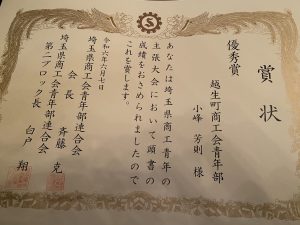 賞状
優秀賞
越生町商工会青年部
小峰 芳則 様
あなたは埼玉県商工青年の
主張大会において頭書の
成績をおさめられましたので
これを賞します。
令和六年六月七日
埼玉県商工会青年部連合会
会長 斉藤 克
埼玉県商工会青年部連合会
第二ブロック長 白戸 翔